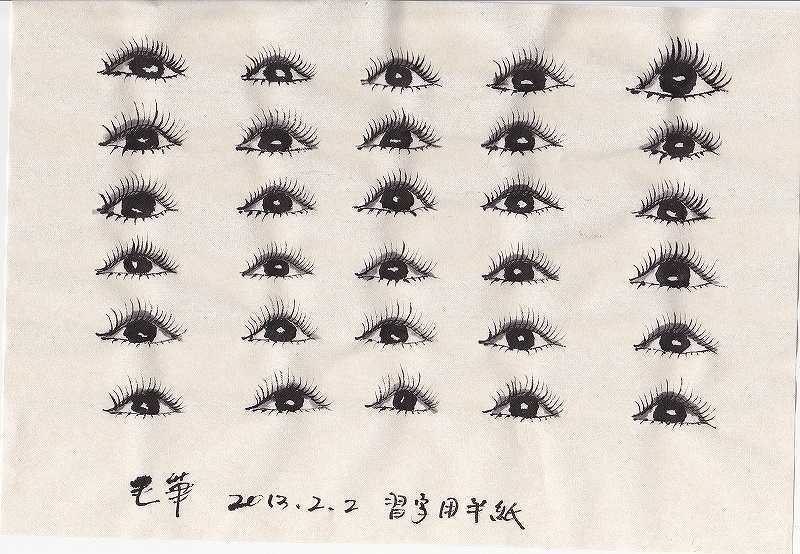 毛筆 2013.2.2 習字用半紙